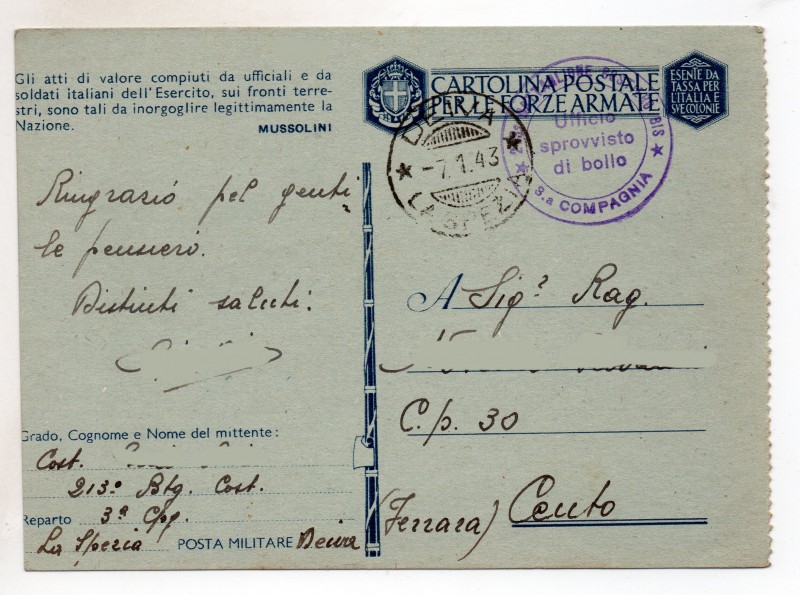 Gli atti di valore compiuti da ufficiali e da
soldati italiani dell'Esercito, sui fronti terre-
stri, sono tali da inorgoglire legittimamente la
Nazione.
MUSSOLINI
CARTOLINA POSTALE
PER LE FORZE ARMATE
ESENTE DA
TASSA PER
L'ITALIA E
SUE COLONIE
DEIVA
-7.1.43
LA SPEZIA
BIS
Ufficio
sprovvisto
di bollo
3.a COMPAGNIA
Ringrazio pel genti
le pensiero.
Distinti saluti:
A Sig.r Rag.
C.p. 30
(Ferrara) Cento
Grado, Cognome e Nome del mittente:
Cost.
213° Btg. Cost.
Reparto 3ª Cpg.
La Spezia POSTA MILITARE Deiva